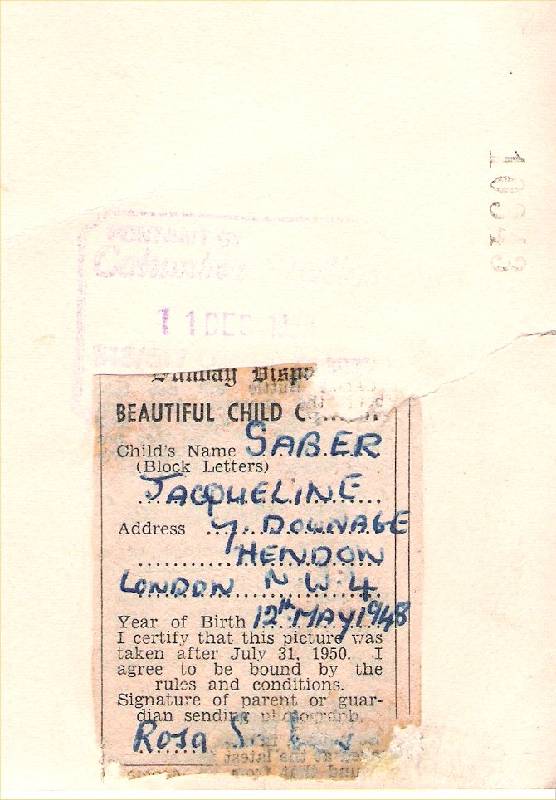 10643
PORTRAIT BY
Columbia
11 DEC
Sunday Disp
BEAUTIFUL CHILD
Child's Name SABER
(Block Letters)
JACQUELINE
Address 7. DOWNAGE
HENDON
LONDON N W.4
Year of Birth 12th MAY 1948
I certify that this picture was
taken after July 31, 1950. I
agree to be bound by the
rules and conditions.
Signature of parent or guar-
dian sending photograph.
Rosa Saber
at the latest